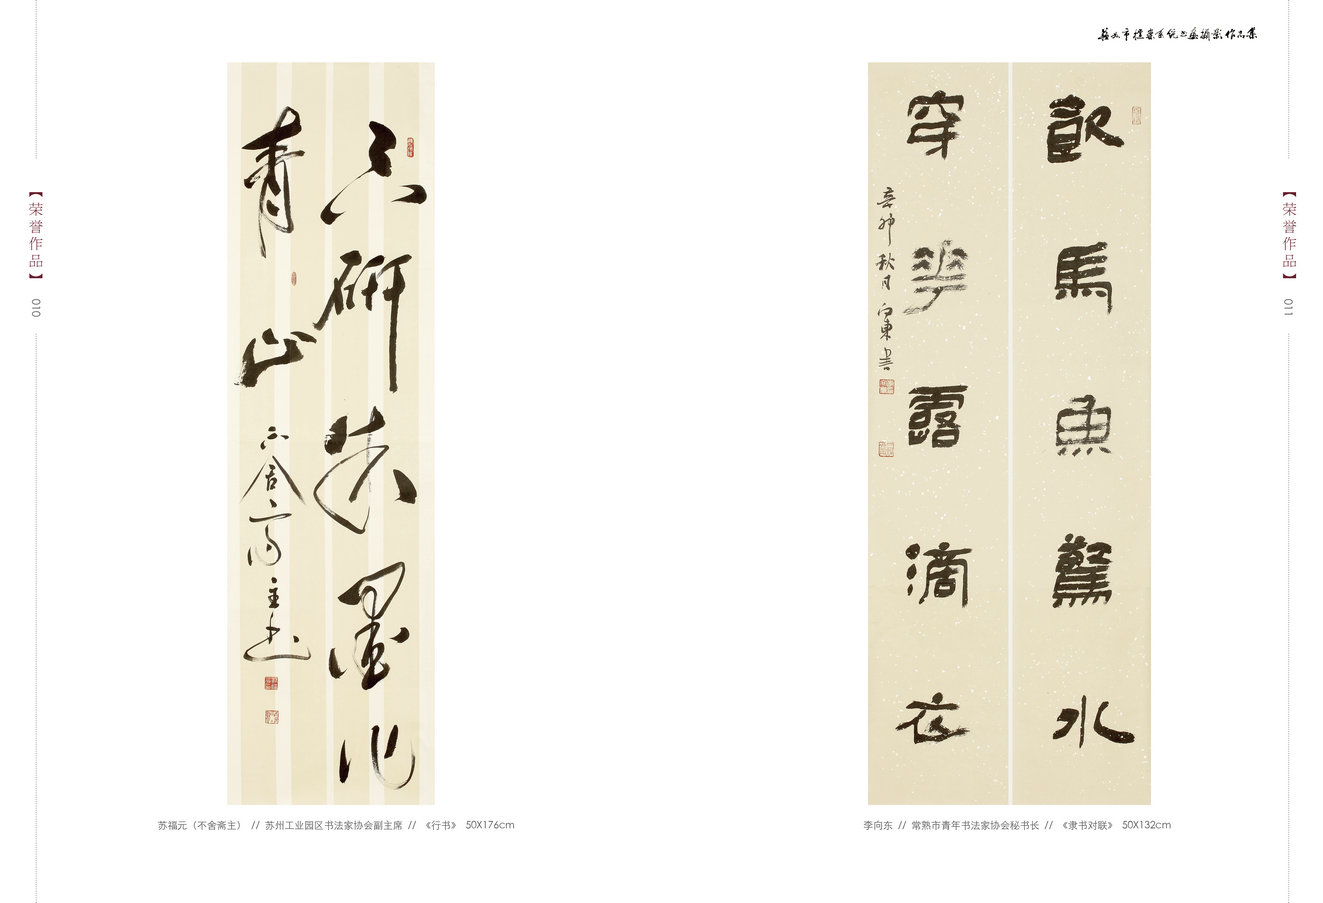 蘇州市檔案系統書畫攝影作品集
【荣誉作品】
010
只研朱墨作
青山
不舍斋主书
苏福元（不舍斋主） // 苏州工业园区书法家协会副主席 // 《行书》 50X176cm
飲馬魚驚水
穿花露滴衣
辛卯秋月向東書
李向东 // 常熟市青年书法家协会秘书长 // 《隶书对联》 50X132cm
【荣誉作品】
011